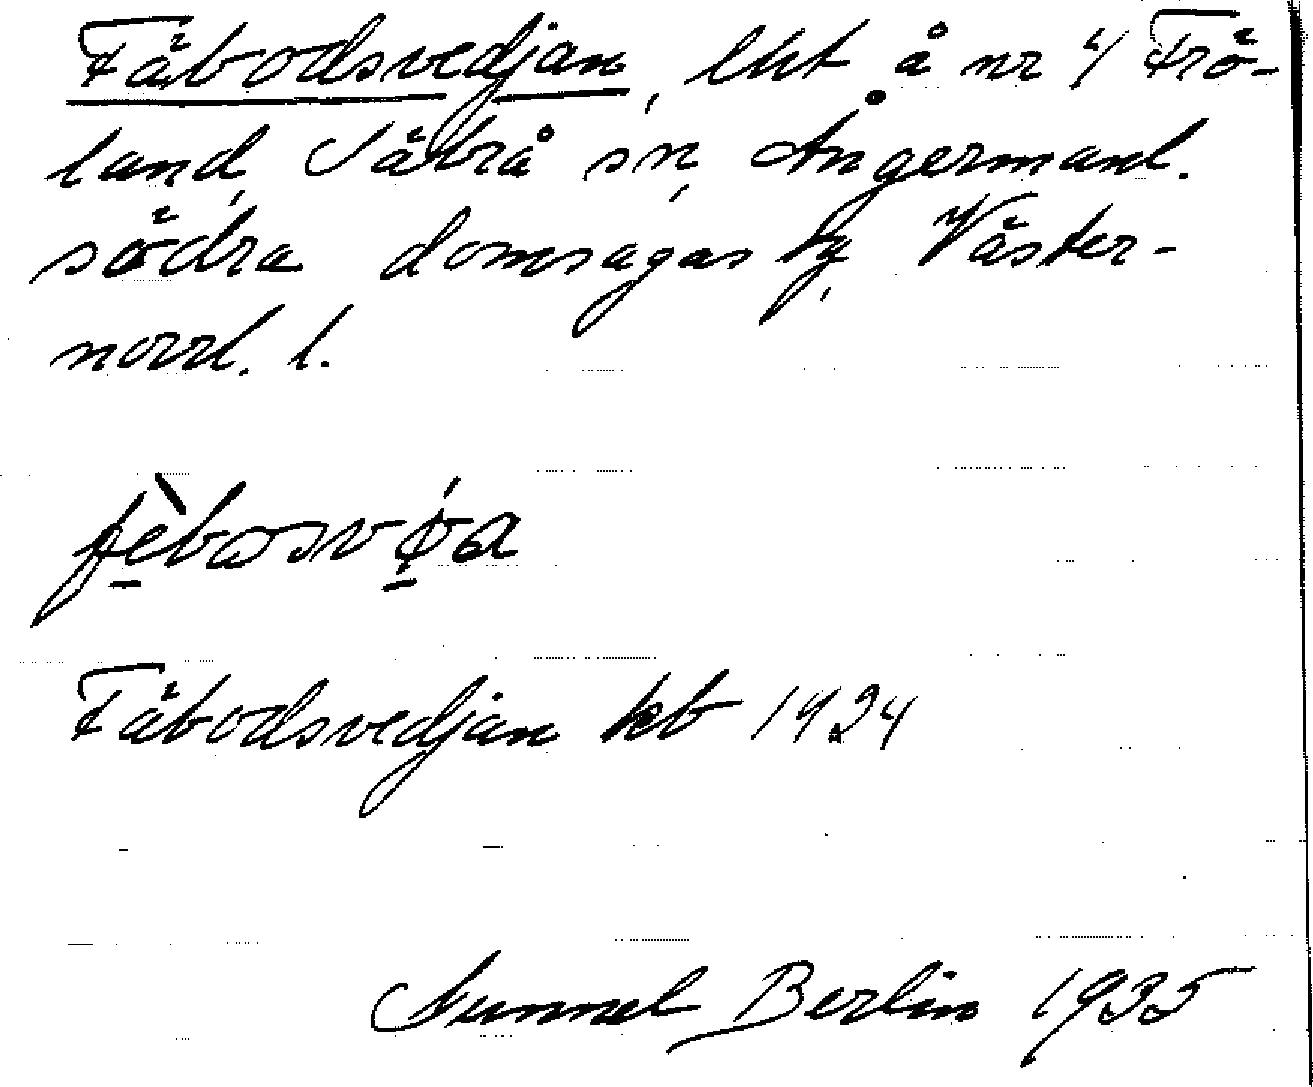 Fäbodsvedjan, lht å nr 4 Frö-
land, Säbrå sn, Ångermanl.
södra domsagas tg, Väster-
norrl. l.
fè̱bosvǿ̱a
Fäbodsvedjan kb 1924
Gunnel Berlin 1935